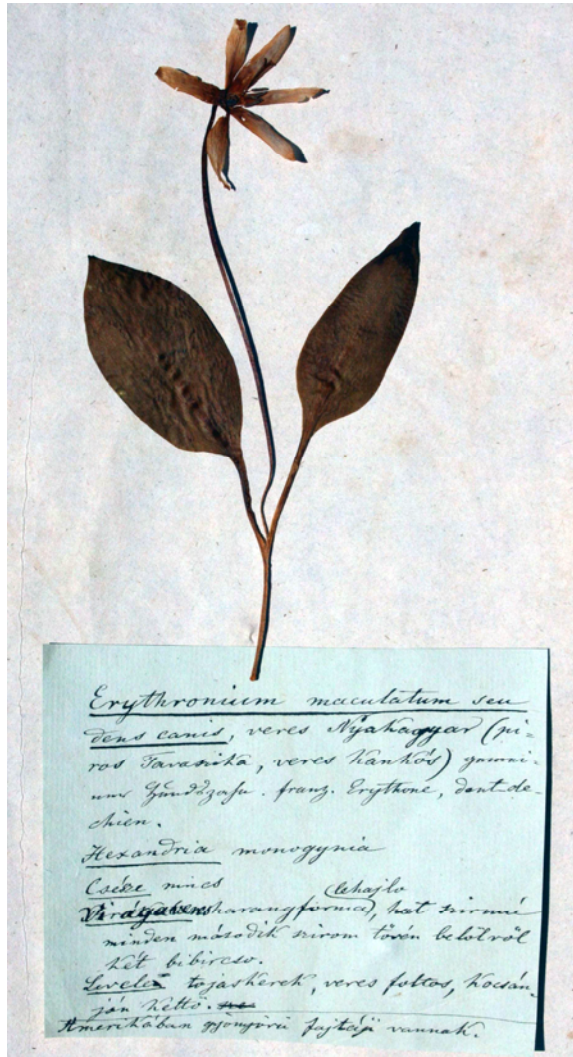 Erythronium maculatum seu
dens canis, veres Nyakagyar (pi-
ros Tavasika, veres Kankós)
Hundszahn. franz. Erythrone, dent-de-
chien.
Hexandria monogynia
Cséze nincs
harangforma, lehajlo, hat szirmú
minden második szirom tövén belölről
két bibircso.
Levele tojaskerek, veres foltos, kocsán-
ján kettö.
Amerikában gyönyörü fajtáji vannak.